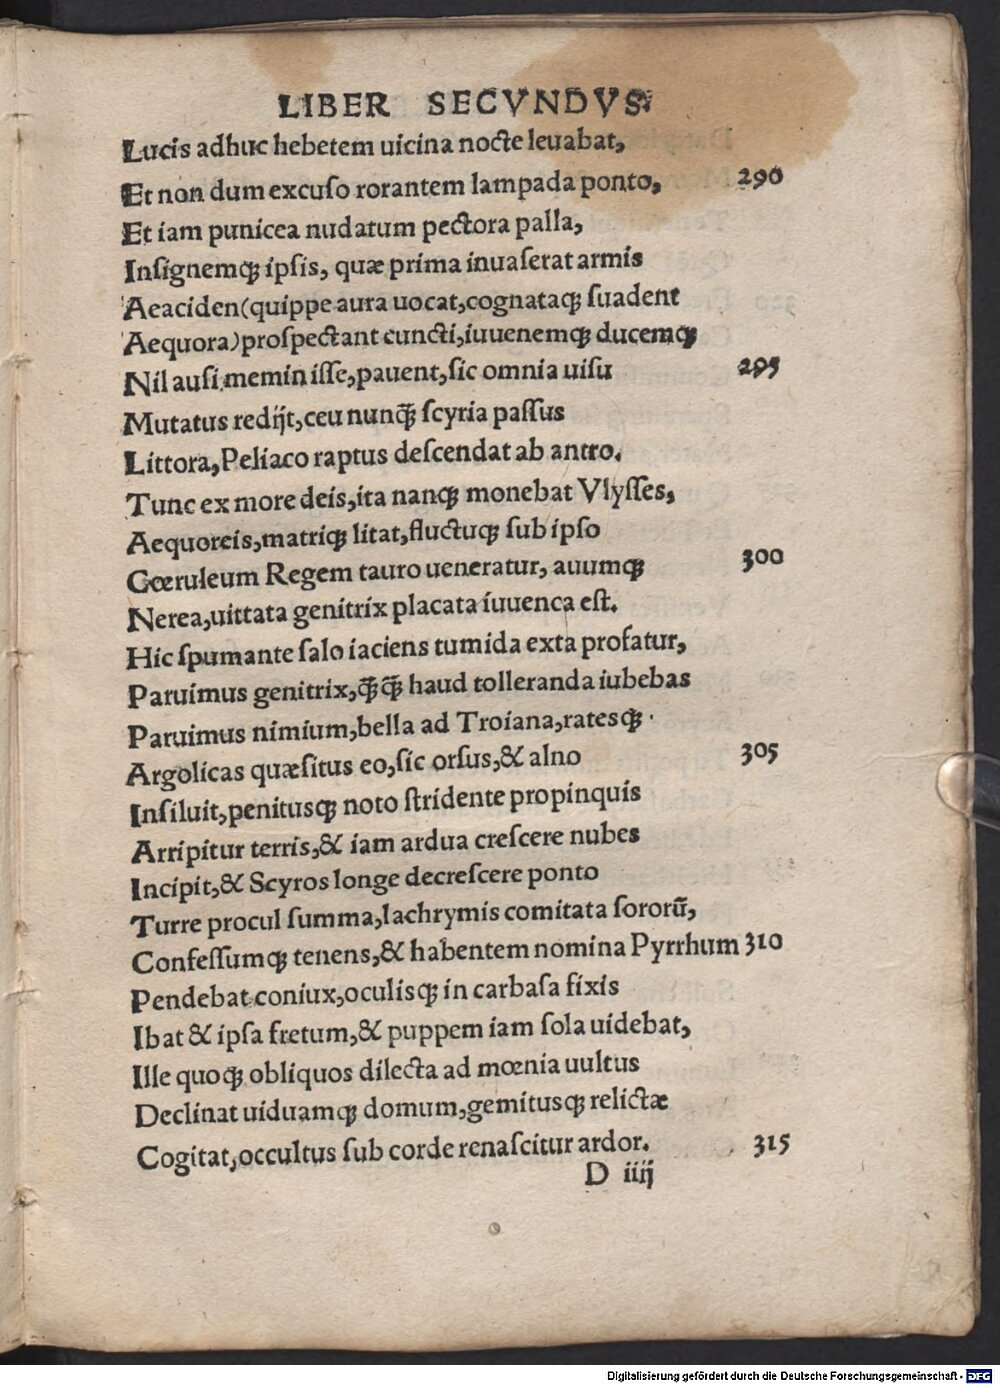 LIBER SECVNDVS.
Lucis adhuc hebetem uicina nocte leuabat,
Et non dum excuſo rorantem lampada ponto, 290
Et iam punicea nudatum pectora palla,
Inſignemqꝫ ipſis, quæ prima inuaſerat armis
Aeaciden(quippe aura uocat,cognataqꝫ ſuadent
Aequora)proſpectant cuncti,iuuenemqꝫ ducemqꝫ
Nil auſi meminiſſe,pauent,ſic omnia uiſu 295
Mutatus redijt,ceu nunq̃ ſcyria paſſus
Littora,Peliaco raptus deſcendat ab antro.
Tunc ex more deis,ita nanqꝫ monebat Vlyſſes,
Aequoreis,matriqꝫ litat,fluctuqꝫ ſub ipſo
Cœruleum Regem tauro ueneratur, auumqꝫ 300
Nerea,uittata genitrix placata iuuenca eſt.
Hic ſpumante ſalo iaciens tumida exta profatur,
Paruimus genitrix,q̃q̃ haud tolleranda iubebas
Paruimus nimium,bella ad Troiana,ratesqꝫ
Argolicas quæſitus eo,ſic orſus,& alno 305
Inſiluit,penitusqꝫ noto ſtridente propinquis
Arripitur terris,& iam ardua creſcere nubes
Incipit,& Scyros longe decreſcere ponto
Turre procul ſumma,lachrymis comitata ſororũ,
Confeſſumqꝫ tenens,& habentem nomina Pyrrhum 310
Pendebat coniux,oculisqꝫ in carbaſa fixis
Ibat & ipſa fretum,& puppem iam ſola uidebat,
Ille quoqꝫ obliquos dilecta ad mœnia uultus
Declinat uiduamqꝫ domum,gemitusqꝫ relictæ
Cogitat,occultus ſub corde renaſcitur ardor. 315
D iiij
Digitalisierung gefördert durch die Deutsche Forschungsgemeinschaft - DFG